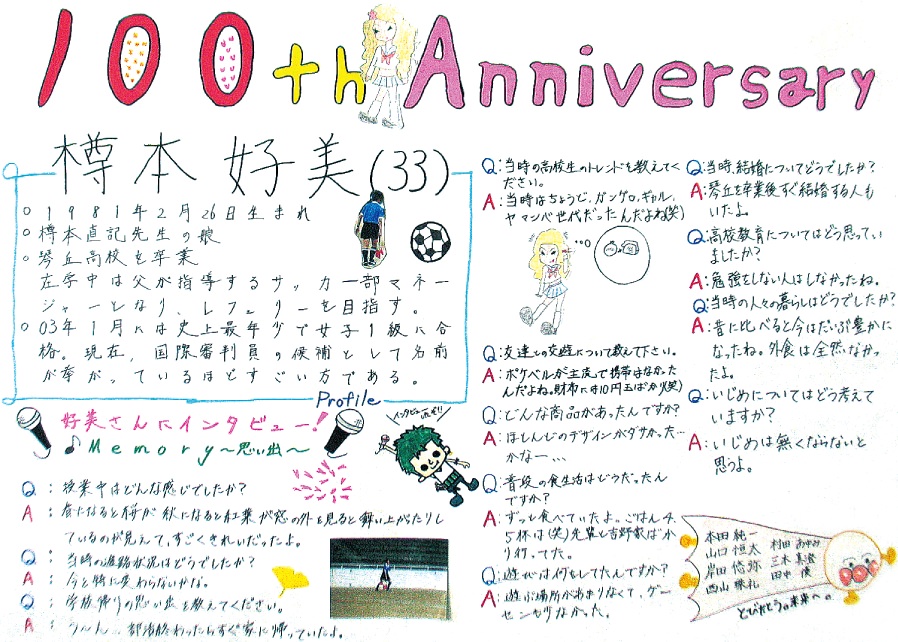 100th Anniversary
樽本 好美(33)
○1981年2月26日生まれ
○樽本直記先生の娘
○琴丘高校を卒業
在学中は父が指導するサッカー部マネー
ジャーとなり、レフェリーを目指す。
○03年1月には史上最年少で女子1級に合
格。現在、国際審判員の候補として名前
が挙がっているほどすごい方である。
Profile
好美さんにインタビュー!
♪Memory~思い出~
インタビュー
Q:授業中はどんな感じでしたか?
A:春になると桜が秋になると紅葉が窓の外を見ると舞い上がたりし
ているのが見えて、すごくきれいだったよ。
Q:当時の進路状況はどうでしたか?
A:今と特に変わらないかな。
Q:学校帰りの思い出を教えてください。
A:う〜ん…部活終わったらすぐ家に帰っていたよ。
Q:当時の高校生のトレンドを教えてく
ださい。
A:当時はちょうど、ガングロ、ギャル、
ヤマンバ世代だったんだよね(笑)
Q:友達との交遊について教えて下さい。
A:ポケベルが主流で携帯はなかった
んだよね。財布には10円玉ばかり(笑)
Q:どんな商品があったんですか?
A:ほしんじのデザインがダサかった…
かなー…
Q:普段の食生活はどうだったん
ですか?
A:ずっと食べていたよ。ごはん4、
5杯は(笑)先輩と吉野家ばっか
り行ってた。
Q:遊びは何をしてたんですか?
A:遊ぶ場所があまりなくて、ゲー
センもなかった。
Q:当時、結婚についてどうでしたか?
A:琴丘を卒業後すぐ結婚する人も
いたよ。
Q:高校教育についてはどう思ってい
ましたか?
A:勉強をしない人はしなかったね。
Q:当時の人々の暮らしはどうでしたか?
A:昔に比べると今はだいぶ豊かに
なったね。外食は全然なかっ
たよ。
Q:いじめについてはどう考えて
いますか?
A:いじめは無くならないと
思うよ。
本田 純一
山口 恒太
岸田 悠弥
西山
村田 あゆみ
三木
田中
とびたとう未来へ。